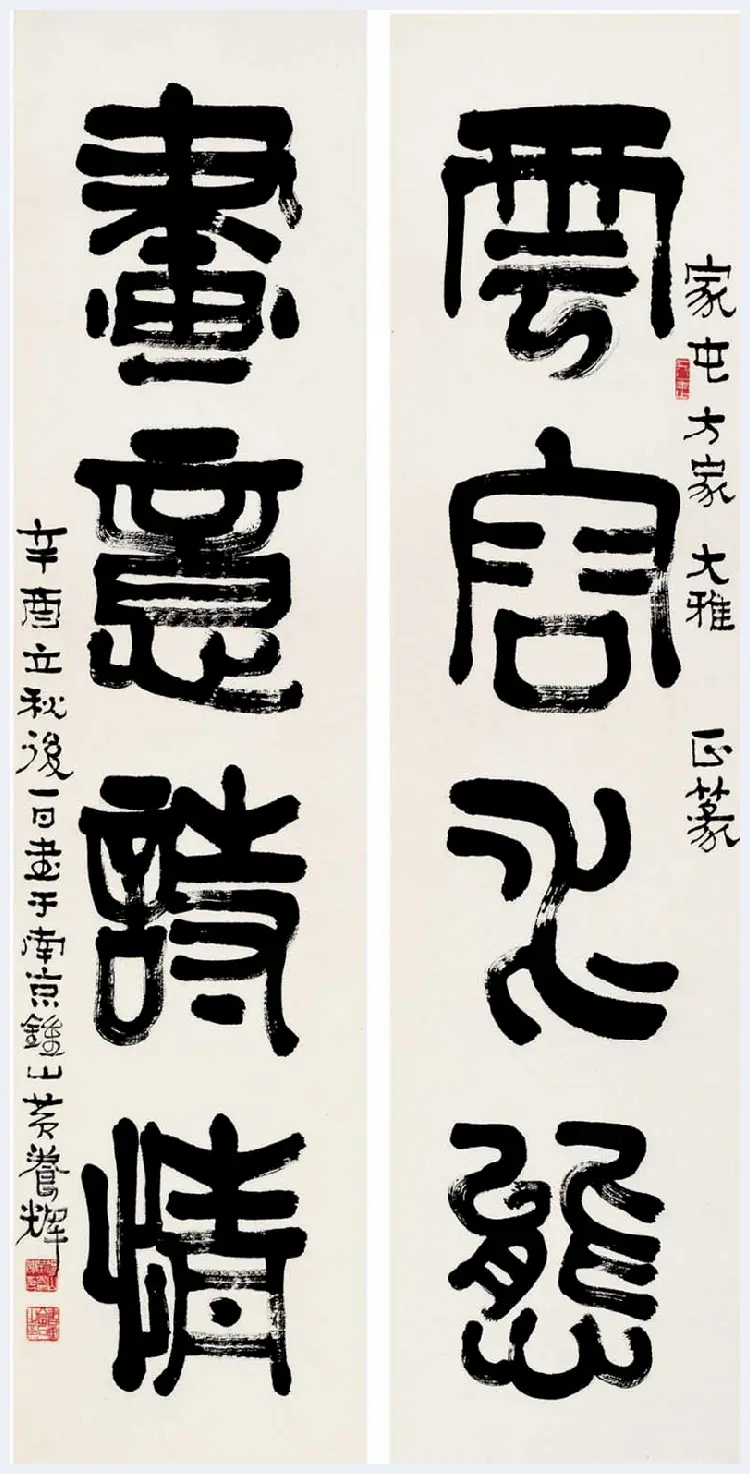 家屯方家大雅 正篆
雲容水態
畫意詩情
辛酉立秋後一日書于南京鍾山黄養輝